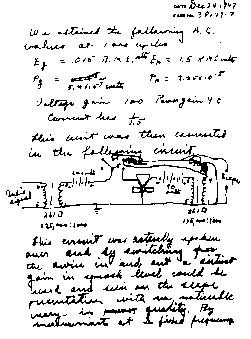 DATE Dec 24 1947
CASE No. 38139-7
We obtained the following A.C.
values at 1000 cycles
Eg = .015 R.M.S. Ep = 1.5 R.M.S. volts
Pg = 5.4 x 10⁻⁷ watts Pp = 2.25 x 10⁻⁵
Voltage gain 100 Power gain 40
Current loss 1/2.5
This unit was then connected
in the following circuit
signal
261 B
125,000 : 1000
261 B
This circuit was actually spoken
over and by switching
the device in and out a distinct
gain in speech level could be
heard and seen on the scope
presentation with no noticeable
change in quality. By
measurements at a fixed frequency